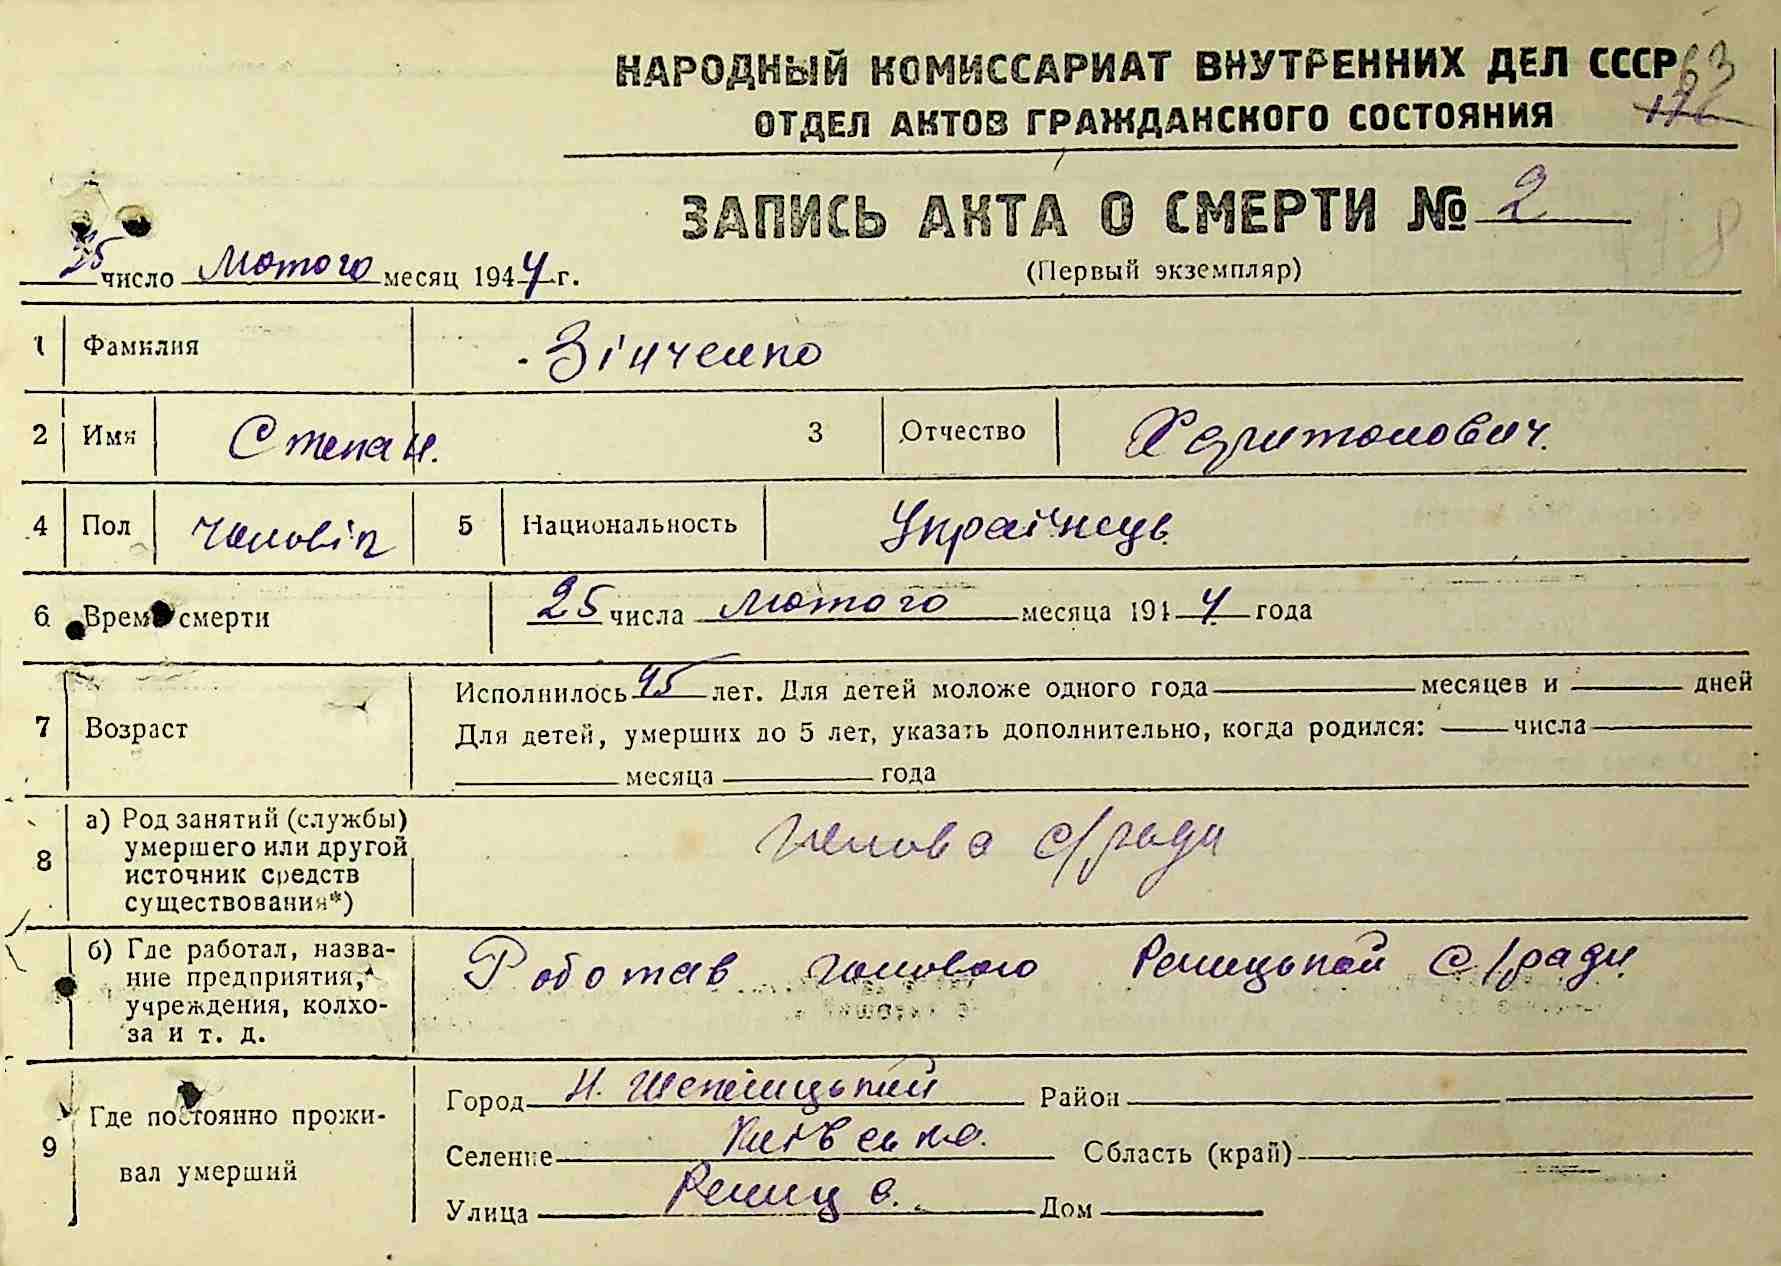 НАРОДНЫЙ КОМИССАРИАТ ВНУТРЕННИХ ДЕЛ СССР 63
ОТДЕЛ АКТОВ ГРАЖДАНСКОГО СОСТОЯНИЯ
ЗАПИСЬ АКТА О СМЕРТИ № 2
25 число лютого месяц 1944 г.
(Первый экземпляр)
1 Фамилия Зінченко
2 Имя Степан. 3 Отчество Харитонович.
4 Пол Чоловік 5 Национальность Українець
6 Время смерти 25 числа лютого месяца 1944 года
7 Возраст
Исполнилось 45 лет. Для детей моложе одного года месяцев и дней
Для детей, умерших до 5 лет, указать дополнительно, когда родился: числа
месяца года
8 а) Род занятий (службы)
умершего или другой
источник средств
существования*)
Голова с/ради
б) Где работал, назва-
ние предприятия,
учреждения, колхо-
за и т. д.
Роботав головою с/ради
9 Где постоянно прожи-
вал умерший
Город Район
Селение Київська. Область (край)
Улица Дом